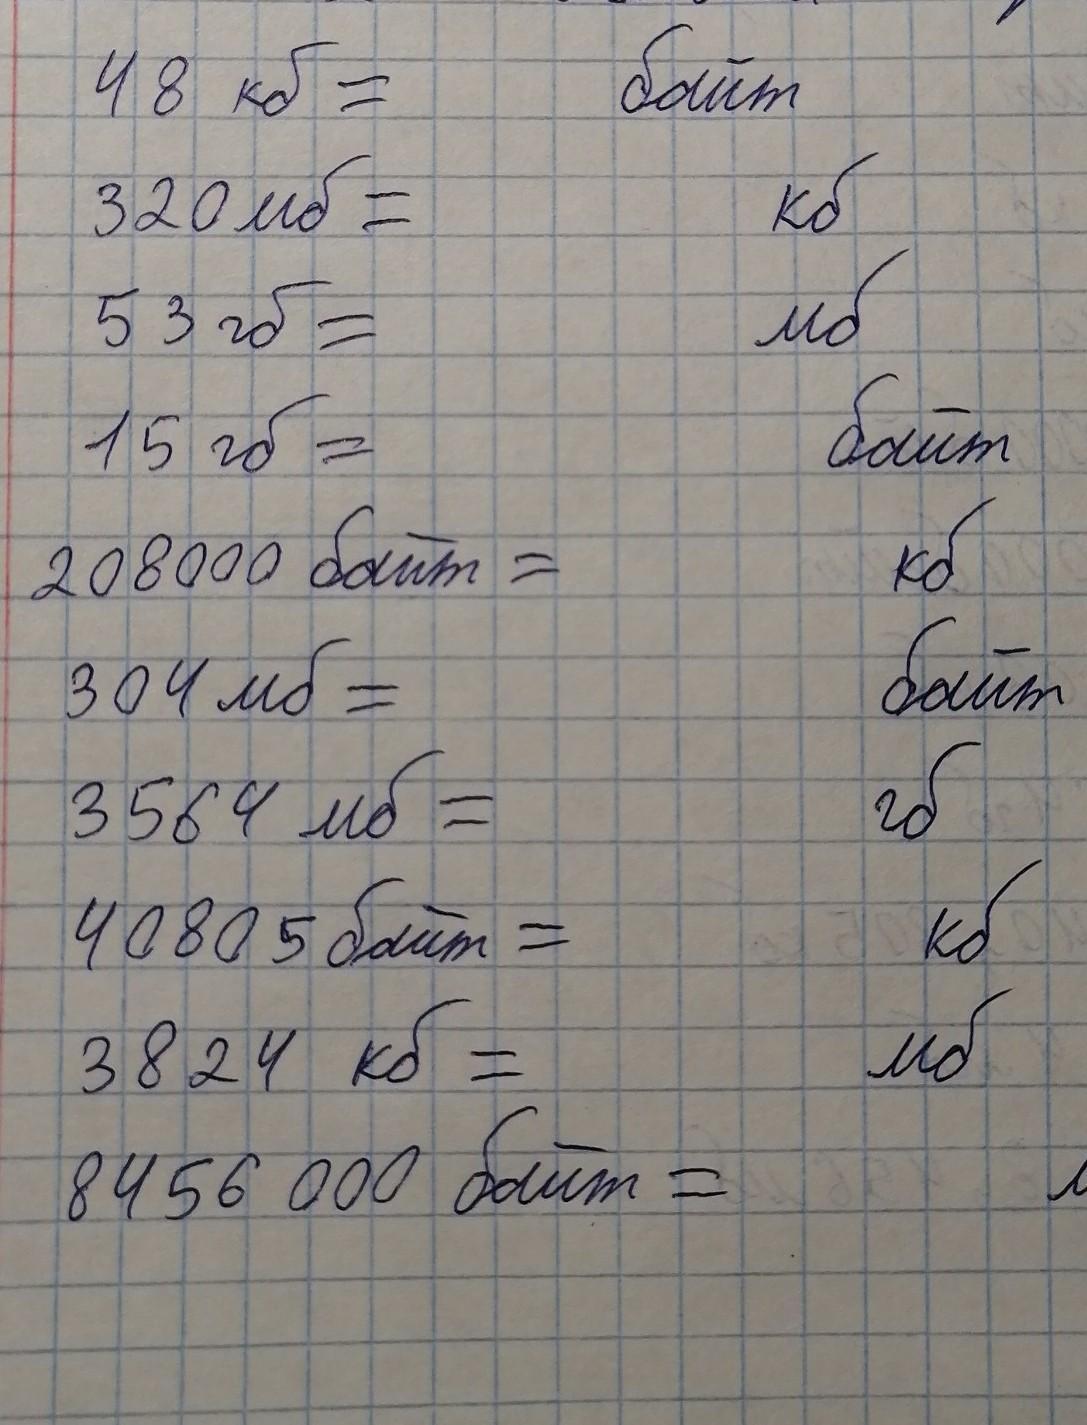 48 кб = байт
320 мб = кб
53 гб = мб
15 гб = байт
208000 байт = кб
304 мб = байт
3564 мб = гб
40805 байт = кб
3824 кб = мб
8456 000 байт =